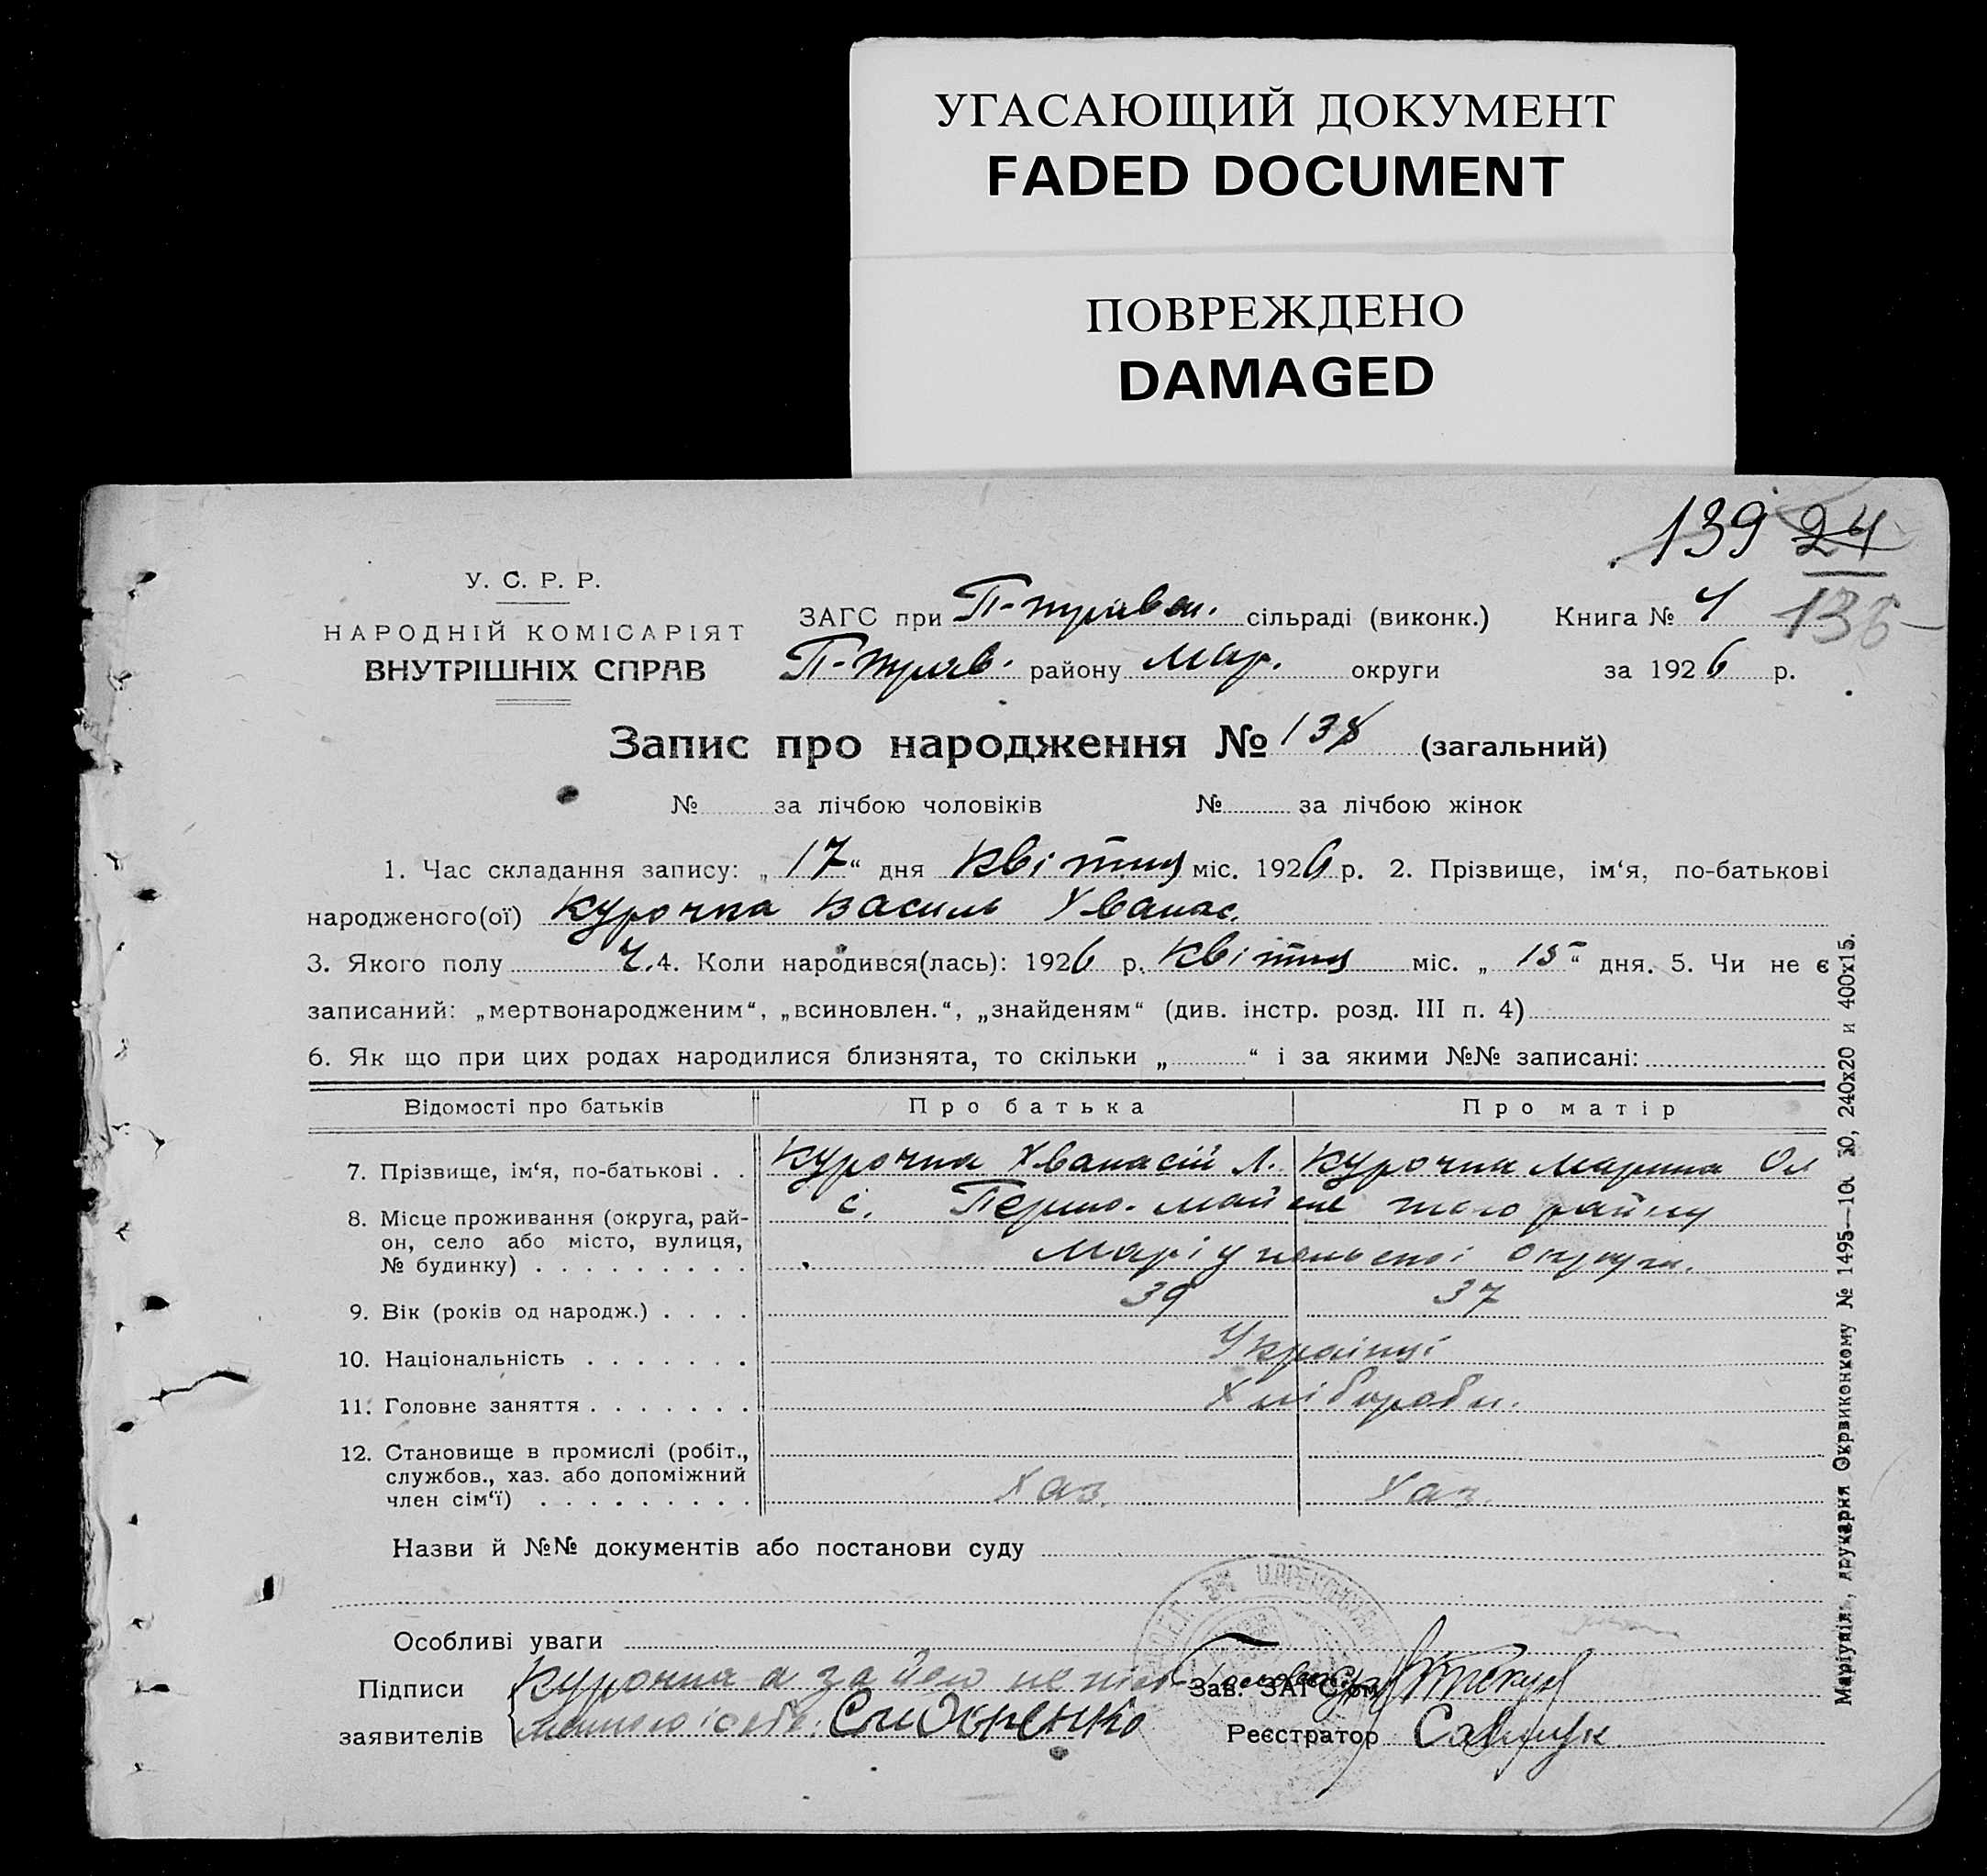 УГАСАЮЩИЙ ДОКУМЕНТ
FADED DOCUMENT
ПОВРЕЖДЕНО
DAMAGED
139 24
У. С. Р. Р.
НАРОДНІЙ КОМІСАРІЯТ
ВНУТРІШНІХ СПРАВ
ЗАГС при сільраді (виконк.) Книга № 4
району Мар. округи за 1926 р.
Запис про народження № 138 (загальний)
№ за лічбою чоловіків № за лічбою жінок
1. Час складання запису: „17“ дня Квітня міс. 1926 р. 2. Прізвище, ім‘я, по-батькові
народженого(ої) Курочка Василь Хванас.
3. Якого полу Ч. 4. Коли народився(лась): 1926 р. Квітня міс. „15“ дня. 5. Чи не є
записаний: „мертвонародженим“, „всиновлен.“, „знайденям“ (див. інстр. розд. III п. 4)
6. Як що при цих родах народилися близнята, то скільки „ “ і за якими №№ записані:
Відомості про батьків Про батька Про матір
7. Прізвище, ім‘я, по-батькові . . Курочка Хванасій Л. Курочка Марина Ол
8. Місце проживання (округа, рай-
он, село або місто, вулиця,
№ будинку) . . . . . . . . .
с. Перто-майське того району
Маріупольської округи.
9. Вік (років од народж.) . . . . 39 37
10. Національність . . . . . . . Українці
11. Головне заняття . . . . . . . Хлібороби.
12. Становище в промислі (робіт.,
службов., хаз. або допоміжний
член сім‘ї) . . . . . . . . . Хаз. Хаз.
Назви й №№ документів або постанови суду
Особливі уваги
Підписи Курочка а за його не пись- Зав. ЗАГС‘ом
заявителів менного Сидоренко Реєстратор
Маріупіль, друкарня Окрвиконкому № 1495—10 240х20 и 400х15.